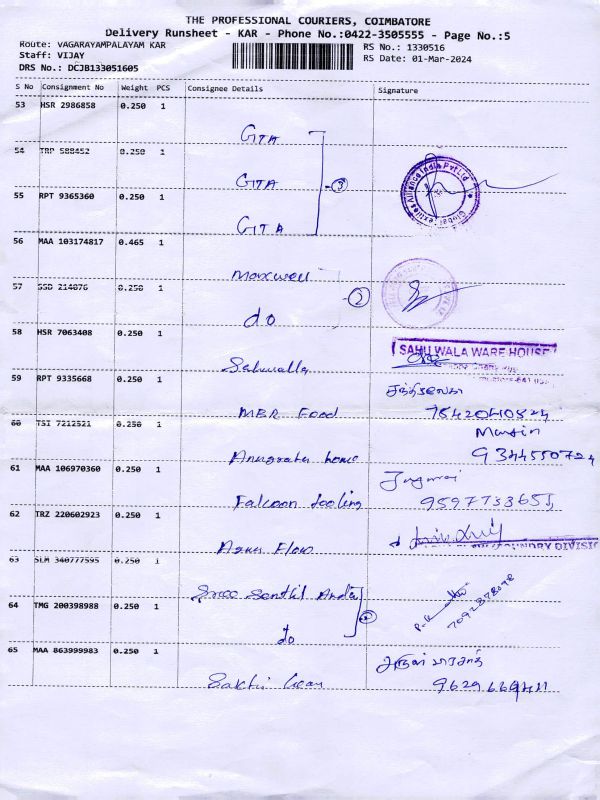 THE PROFESSIONAL COURIERS, COIMBATORE
Delivery Runsheet - KAR - Phone No.:0422-3505555 - Page No.:5
Route: VAGARAYAMPALAYAM KAR
RS No.: 1330516
Staff: VIJAY
RS Date: 01-Mar-2024
DRS No.: DCJB133051605
S No Consignment No Weight PCS Consignee Details Signature
53 HSR 2986858 0.250 1
GTA
54 TRP 588452 0.250 1
GTA
3
Global Textiles Alliance India Pvt Ltd
55 RPT 9365360 0.250 1
GTA
56 MAA 103174817 0.465 1
Maxwell
57 SSD 214076 0.250 1
2
do
58 HSR 7063408 0.250 1
SAHU WALA WARE HOUSE
Sahuwalla
59 RPT 9335668 0.250 1
MBR Food
7542040524
60 TSI 7212521 0.250 1
Martin
Anugraha home
9344550724
61 MAA 106970360 0.250 1
Falcoon tooling
9597733655
62 TRZ 220602923 0.250 1
FOUNDRY DIVISION
Flow
63 SLM 340777595 0.250 1
Sree Senthil Andar
64 TMG 200398988 0.250 1
2
7092878098
do
65 MAA 863999983 0.250 1
Sakthi